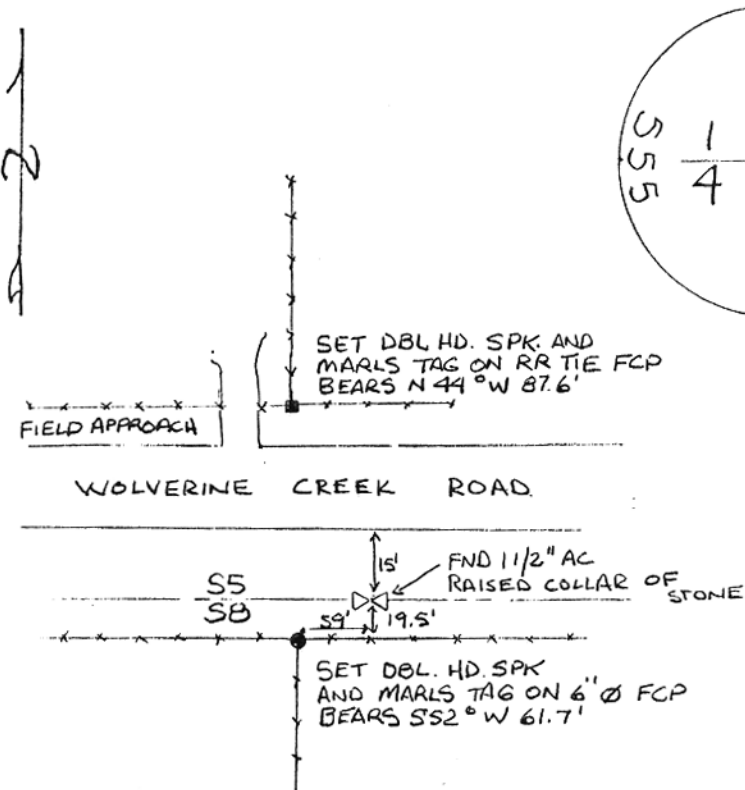 N
1
4
S S S
SET DBL HD. SPK. AND
MARLS TAG ON RR TIE FCP
BEARS N 44°W 87.6'
FIELD APPROACH
WOLVERINE CREEK ROAD
15'
FND 1 1/2" AC
RAISED COLLAR OF STONE
S5
S8
59'
19.5'
SET DBL. HD. SPK
AND MARLS TAG ON 6" Ø FCP
BEARS S52°W 61.7'